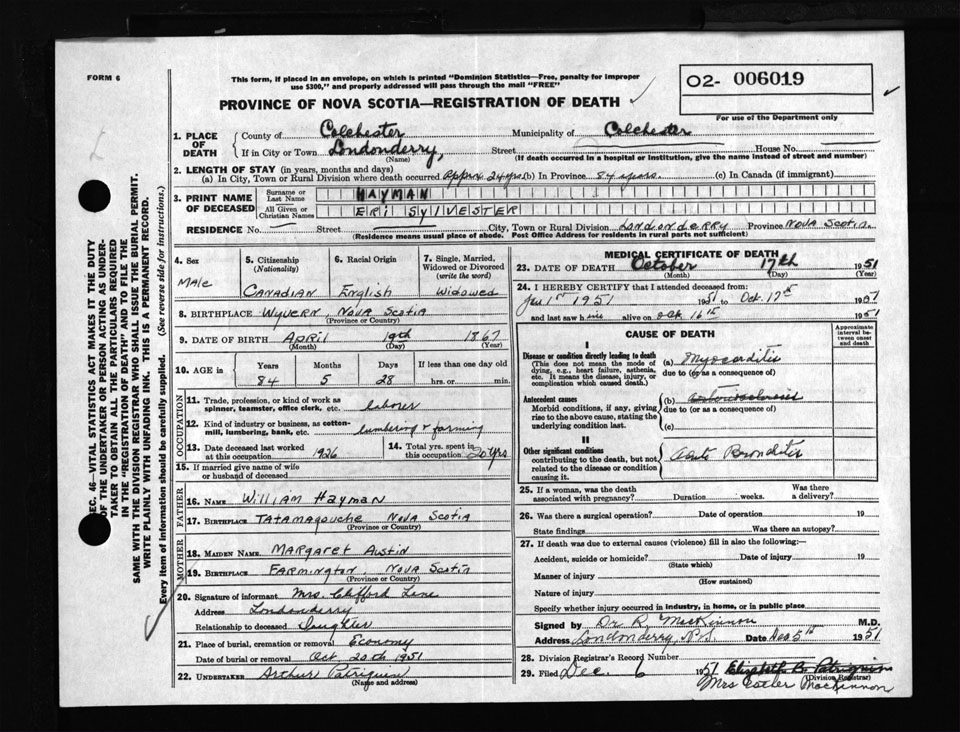 FORM 6
This form, if placed in an envelope, on which is printed "Dominion Statistics—Free, penalty for improper
use $300," and properly addressed will pass through the mail "FREE"
02- 006019
For use of the Department only
PROVINCE OF NOVA SCOTIA—REGISTRATION OF DEATH
SEC. 46—VITAL STATISTICS ACT MAKES IT THE DUTY
OF THE UNDERTAKER OR PERSON ACTING AS UNDER-
TAKER TO OBTAIN ALL THE PARTICULARS REQUIRED
IN THE "REGISTRATION OF DEATH" AND TO FILE THE
SAME WITH THE DIVISION REGISTRAR WHO SHALL ISSUE THE BURIAL PERMIT.
WRITE PLAINLY WITH UNFADING INK. THIS IS A PERMANENT RECORD.
Every item of information should be carefully supplied. (See reverse side for instructions.)
1. PLACE OF DEATH County of Colchester Municipality of Colchester
If in City or Town Londonderry, Street House No.
(Name) (If death occurred in a hospital or institution, give the name instead of street and number)
2. LENGTH OF STAY (in years, months and days)
(a) In City, Town or Rural Division where death occurred approx. 24 yrs. (b) In Province 84 years. (c) In Canada (if immigrant)
3. PRINT NAME OF DECEASED Surname or Last Name HAYMAN
All Given or Christian Names ERI SYLVESTER
RESIDENCE No. — Street — City, Town or Rural Division LONDONDERRY Province NOVA SCOTIA.
(Residence means usual place of abode. Post Office Address for residents in rural parts not sufficient)
4. Sex MALE
5. Citizenship (Nationality) CANADIAN
6. Racial Origin English
7. Single, Married, Widowed or Divorced (write the word) Widowed
8. BIRTHPLACE WYVERN, NOVA SCOTIA
(Province or Country)
9. DATE OF BIRTH APRIL 19th 1867
(Month) (Day) (Year)
10. AGE in Years Months Days If less than one day old
84 5 28 hrs. or min.
OCCUPATION
11. Trade, profession, or kind of work as
spinner, teamster, office clerk, etc. laborer
12. Kind of industry or business, as cotton-
mill, lumbering, bank, etc. lumbering & farming
13. Date deceased last worked at this occupation 1926
14. Total yrs. spent in this occupation 20 yrs
15. If married give name of wife
or husband of deceased
FATHER
16. NAME WILLIAM HAYMAN
17. BIRTHPLACE TATAMAGOUCHE NOVA SCOTIA
(Province or Country)
MOTHER
18. MAIDEN NAME MARGARET Austin
19. BIRTHPLACE FARMINGTON, NOVA SCOTIA
(Province or Country)
20. Signature of informant Mrs. Clifford
Address Londonderry
Relationship to deceased Daughter
21. Place of burial, cremation or removal Economy
Date of burial or removal Oct 20th 1951
22. UNDERTAKER Arthur Patriquin
(Name and address)
MEDICAL CERTIFICATE OF DEATH
23. DATE OF DEATH October 17th 1951
(Month) (Day) (Year)
24. I HEREBY CERTIFY that I attended deceased from:
Jan 1st 1951 1951 to Oct. 17th 1951
and last saw him alive on Oct 16th 1951
CAUSE OF DEATH
Approximate interval between onset and death
I
Disease or condition directly leading to death
(This does not mean the mode of dying, e.g., heart failure, asthenia, etc. It means the disease, injury, or complication which caused death.)
(a) Myocarditis
due to (or as a consequence of)
Antecedent causes
Morbid conditions, if any, giving rise to the above cause, stating the underlying condition last.
(b)
due to (or as a consequence of)
(c)
II
Other significant conditions
contributing to the death, but not related to the disease or condition causing it.
Acute Bronchitis
25. If a woman, was the death associated with pregnancy? Duration weeks. Was there a delivery?
26. Was there a surgical operation? Date of operation 19
State findings Was there an autopsy?
27. If death was due to external causes (violence) fill in also the following:—
Accident, suicide or homicide? Date of injury 19
(State which)
Manner of injury
(How sustained)
Nature of injury
Specify whether injury occurred in industry, in home, or in public place
Signed by Dr R. MacKinnon M.D.
Address Londonderry, N.S. Date Dec 5th 1951
28. Division Registrar's Record Number
29. Filed Dec. 6 1951 Elizabeth B. Patriquin
(Division Registrar)
Mrs MacKinnon